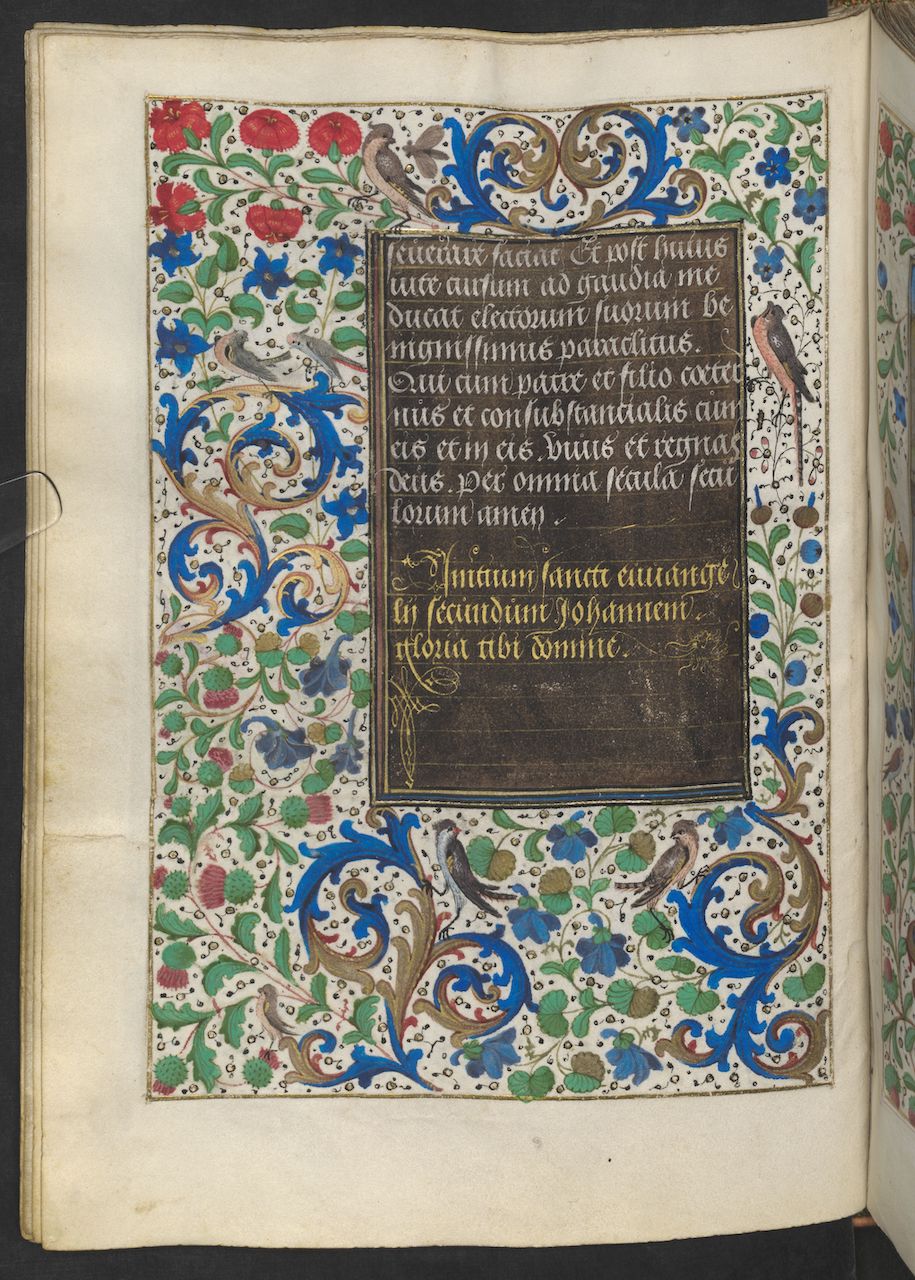 seuerare faciat. Et post huius
uite cursum ad gaudia me
ducat electorum suorum be
nignissimus paraclitus.
Qui cum patre et filio coeter
nus et consubstancialis cum
eis et in eis. Viuis et regnas
deus. Per omnia secula secu
lorum amen.
Initium sancti euuange
lii secundum Johannem.
gloria tibi domine.